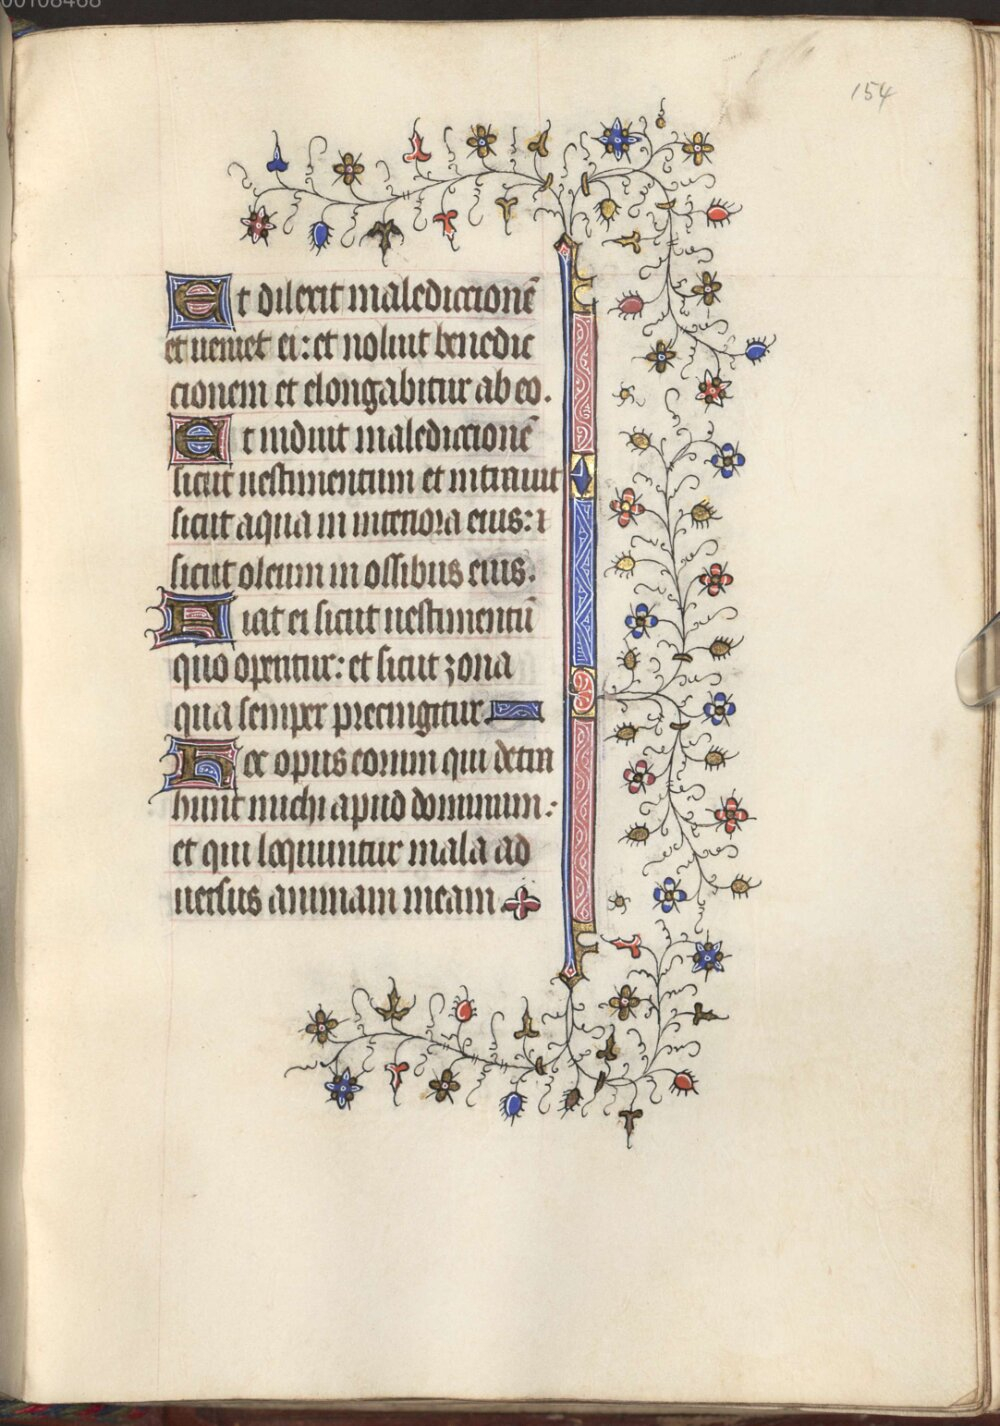 00108468
154
Et dilexit malediccionē
et ueniet ei: et noluit benedic
cionem et elongabitur ab eo.
Et induit malediccionē
sicut uestimentum et intrauit
sicut aqua in interiora eius: ⁊
sicut oleum in ossibus eius.
Fiat ei sicut uestimentū
quo operitur: et sicut zona
qua semper precingitur
Hoc opus eorum qui detra
hunt michi apud dominum:
et qui loquuntur mala ad
uersus animam meam